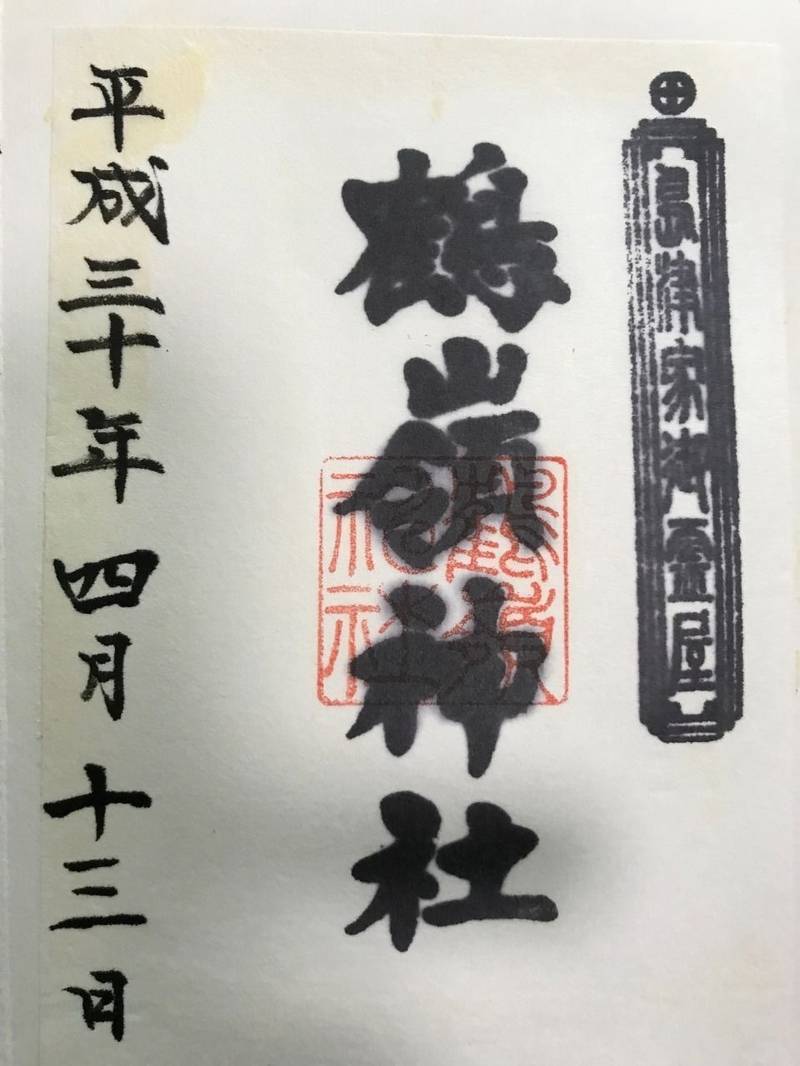 島津家御霊屋
鶴嶺神社
鶴嶺神社
平成三十年四月十三日